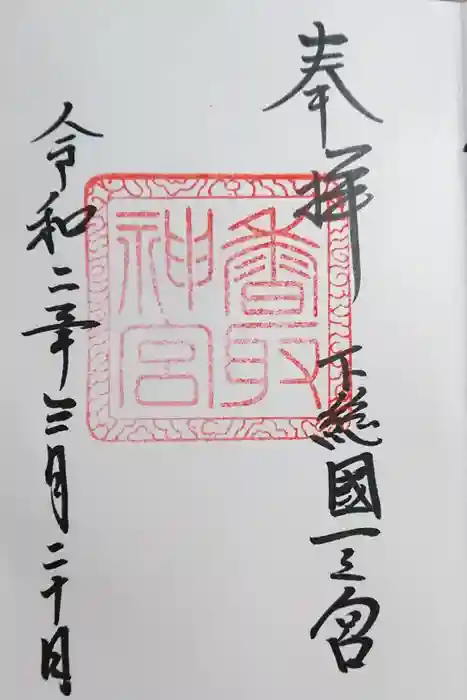 奉拝
下総國一之宮
香取神宮
令和二年三月二十日